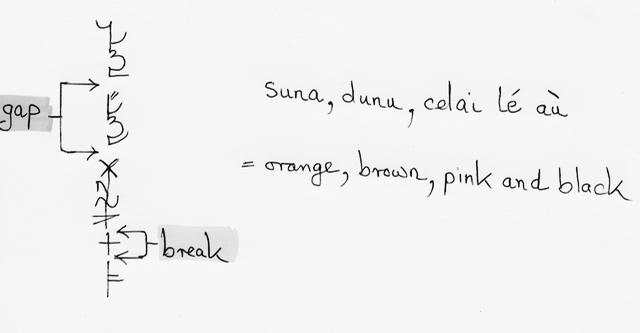 suna, dunu, celai lé aù
gap
= orange, brown, pink and black
break